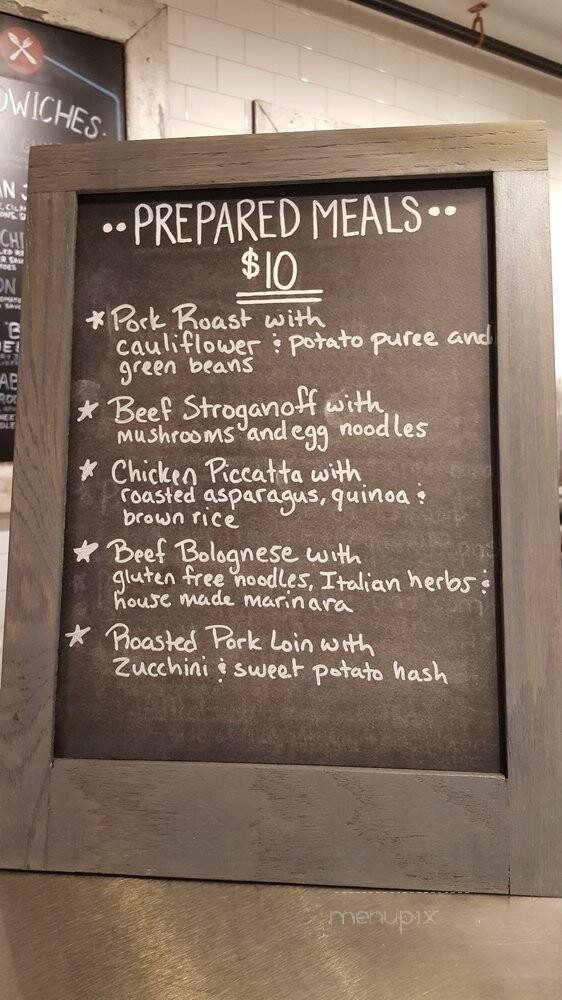 DWICHES
•• PREPARED MEALS ••
$10
* Pork Roast with
cauliflower & potato puree and
green beans
* Beef Stroganoff with
mushrooms and egg noodles
* Chicken Piccatta with
roasted asparagus, quinoa &
brown rice
* Beef Bolognese with
gluten free noodles, Italian herbs &
house made marinara
* Roasted Pork Loin with
Zucchini & sweet potato hash
menupix